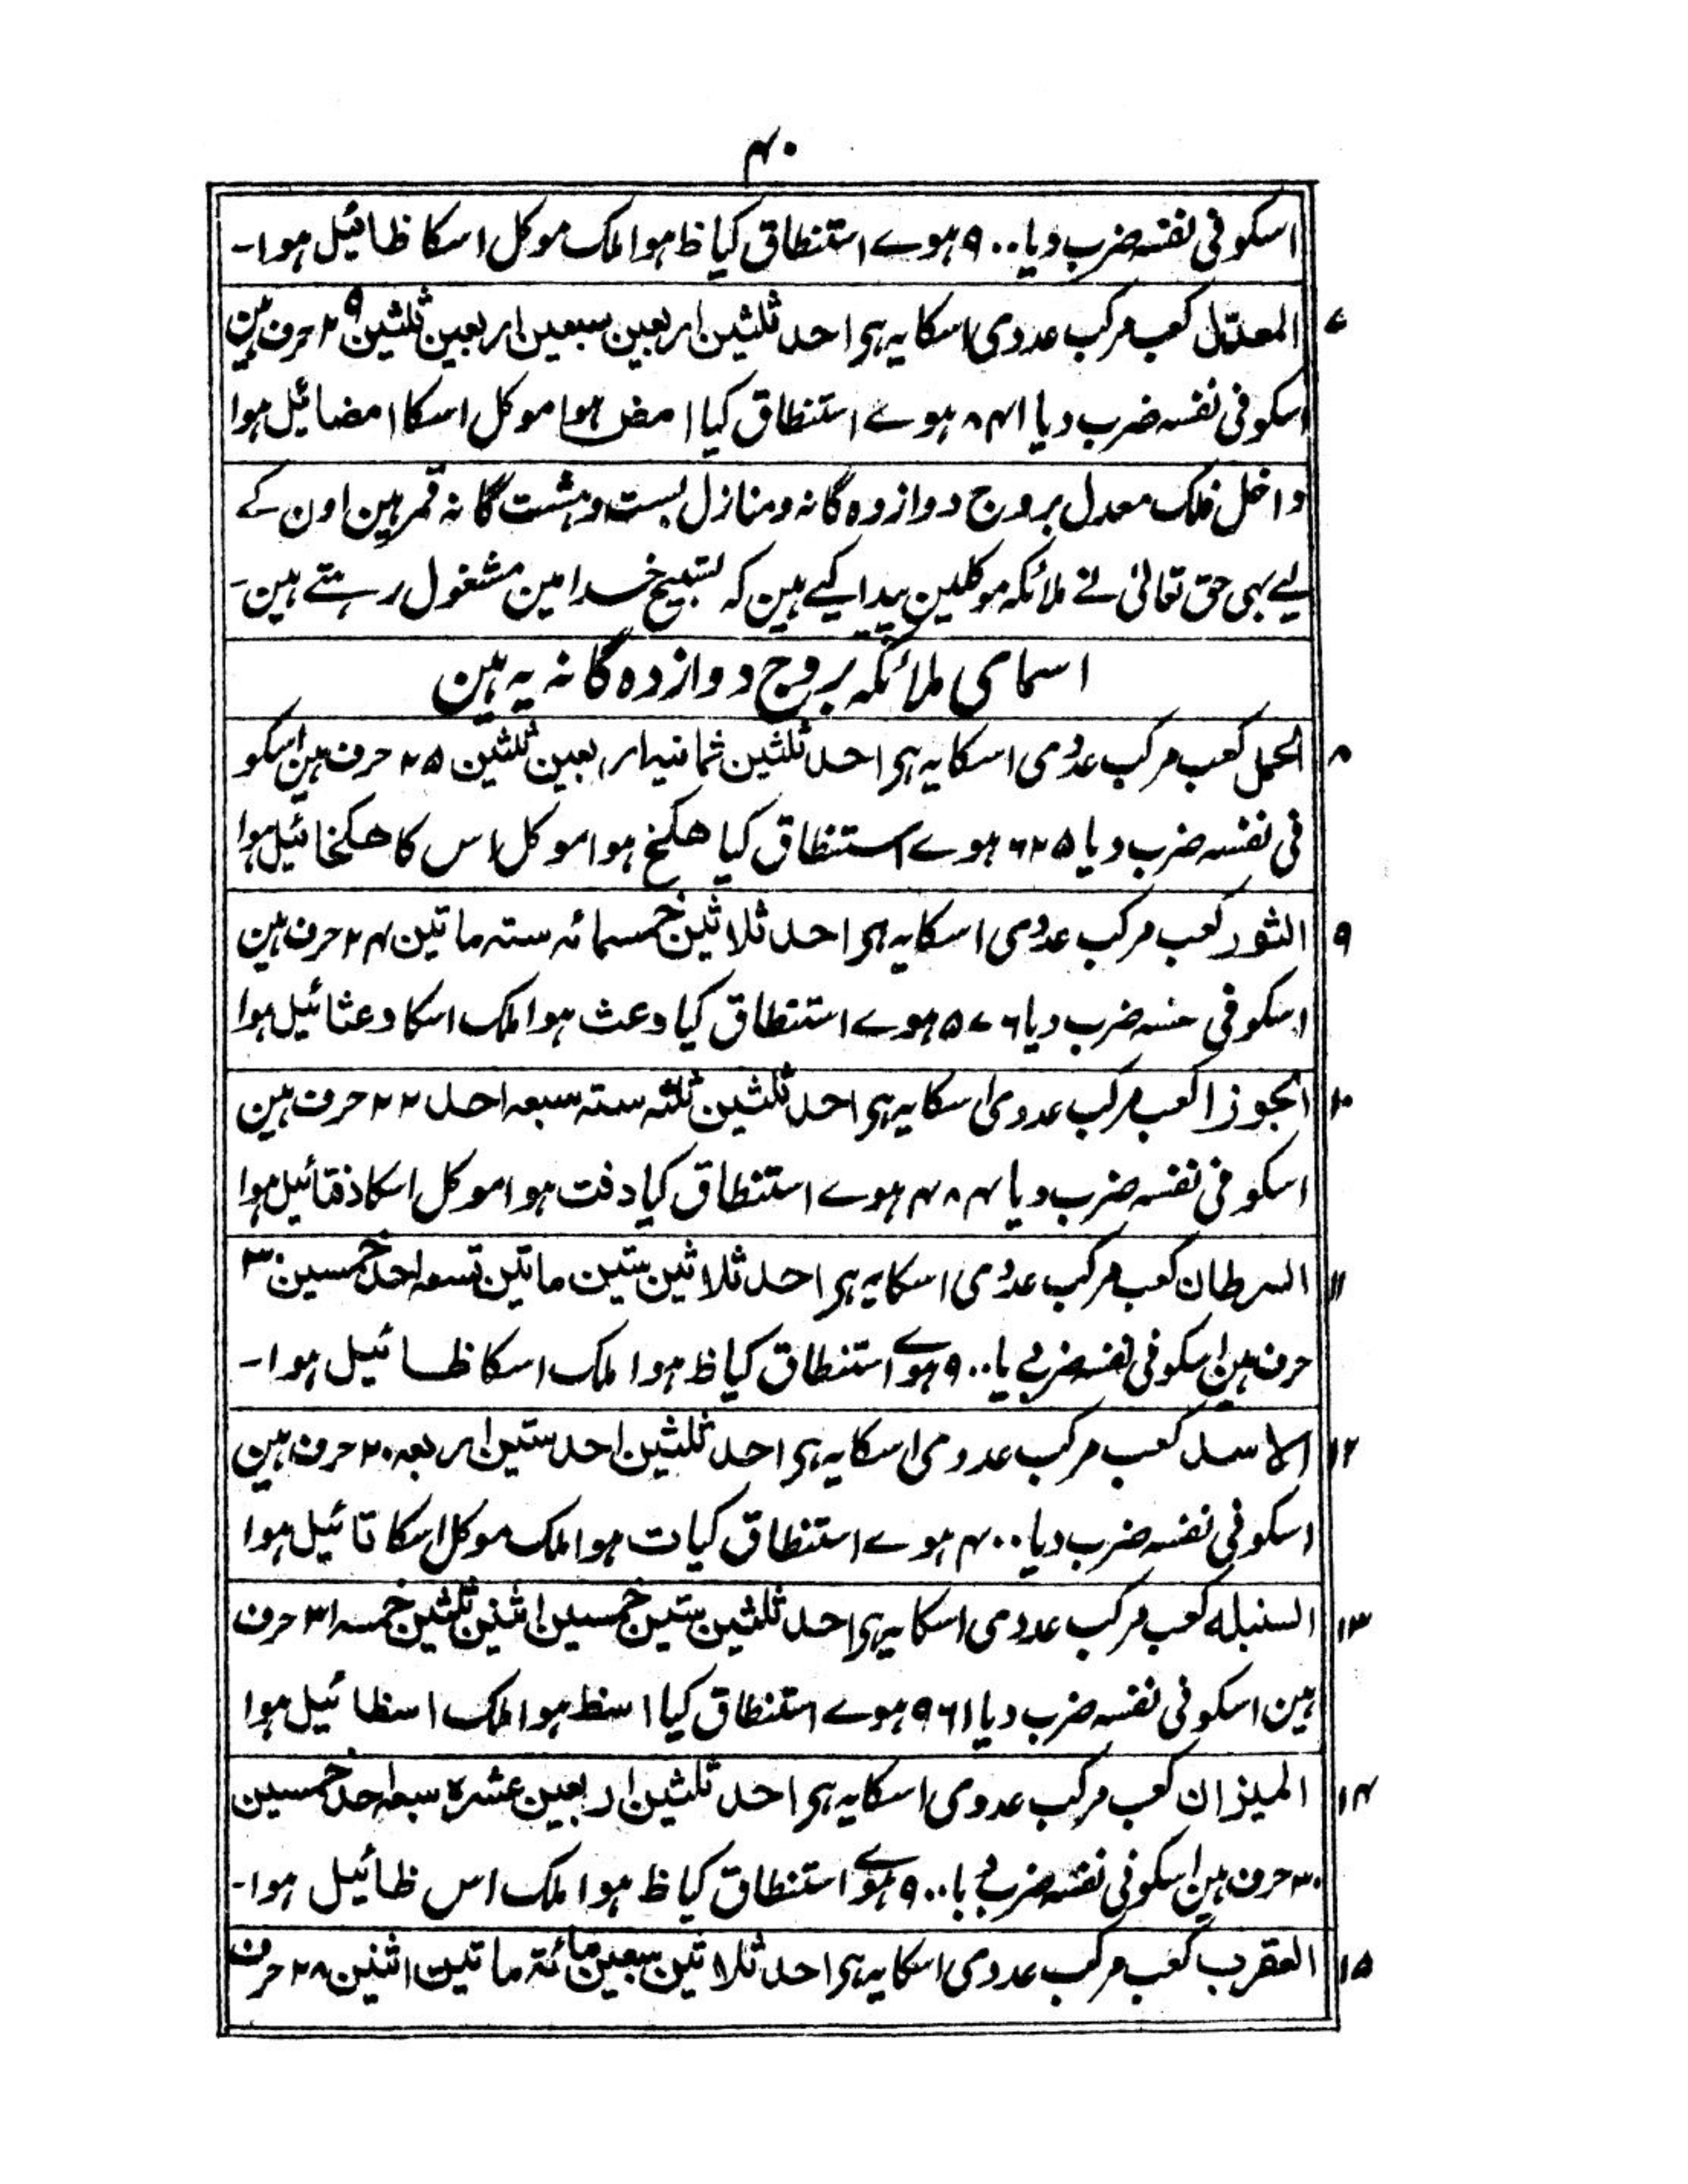 ۴۰
اسکو فی نفسہ ضرب دیا ۹۰۰ ہوے استنطاق کیا ظ ہوا ملک موکل اسکا ظائیل ہوا۔
۷ المعدّل کعب مرکب عددی اسکا یہ ہی احد ثلثین اربعین سبعین اربعین ثلثین ۲۹ حرف ہین
اسکو فی نفسہ ضرب دیا ۸۴۱ ہوے استنطاق کیا امض ہوا موکل اسکا امضائیل ہوا
داخل فلک معدل بروج دوازدہ گانہ و منازل بست و ہشت گانہ قمر ہین اون کے
لیے بہی حق تعالیٰ نے ملائکہ موکلین پیدا کیے ہین کہ تسبیح خدا مین مشغول رہتے ہین۔
اسمای ملائکہ بروج دوازدہ گانہ یہ ہین
۸ الحمل کعب مرکب عددی اسکا یہ ہی احد ثلثین ثمانیہ اربعین ثلثین ۲۵ حرف ہین اسکو
فی نفسہ ضرب دیا ۶۲۵ ہوے استنطاق کیا ھکخ ہوا موکل اس کا ھکخائیل ہوا
۹ الثور کعب مرکب عددی اسکا یہ ہی احد ثلاثین خمسمائہ ستہ ماتین ۲۴ حرف ہین
اسکو فی ضرب دیا ۵۷۶ ہوے استنطاق کیا وعث ہوا ملک اسکا وعثائیل ہوا
۱۰ الجوزا کعب مرکب عددی اسکا یہ ہی احد ثلثین ثلثہ ستہ سبعہ احد ۲۲ حرف ہین
اسکو فی نفسہ ضرب دیا ۴۸۴ ہوے استنطاق کیا دفت ہوا موکل اسکا دفتائیل ہوا
۱۱ السرطان کعب مرکب عددی اسکا یہ ہی احد ثلاثین ستین ماتین تسعہ احد خمسین ۳۰
حرف ہین اسکو فی نفسہ ضرب دیا ۹۰۰ ہوے استنطاق کیا ظ ہوا ملک اسکا ظائیل ہوا۔
۱۲ الاسد کعب مرکب عددی اسکا یہ ہی احد ثلثین احد ستین اربعہ ۲۰ حرف ہین
اسکو فی نفسہ ضرب دیا ۴۰۰ ہوے استنطاق کیا ت ہوا ملک موکل اسکا تائیل ہوا
۱۳ السنبلہ کعب مرکب عددی اسکا یہ ہی احد ثلثین ستین خمسین اثنین ثلثین خمسہ ۳۱ حرف
ہین اسکو فی نفسہ ضرب دیا ۹۶۱ ہوے استنطاق کیا اسظ ہوا ملک اسظائیل ہوا
۱۴ المیزان کعب مرکب عددی اسکا یہ ہی احد ثلثین اربعین عشرہ سبعہ احد خمسین
۳۰ حرف ہین اسکو فی نفسہ ضرب دیا ۹۰۰ ہوے استنطاق کیا ظ ہوا ملک اس ظائیل ہوا۔
۱۵ العقرب کعب مرکب عددی اسکا یہ ہی احد ثلاثین سبعین مائۃ ماتین اثنین ۲۸ حرف